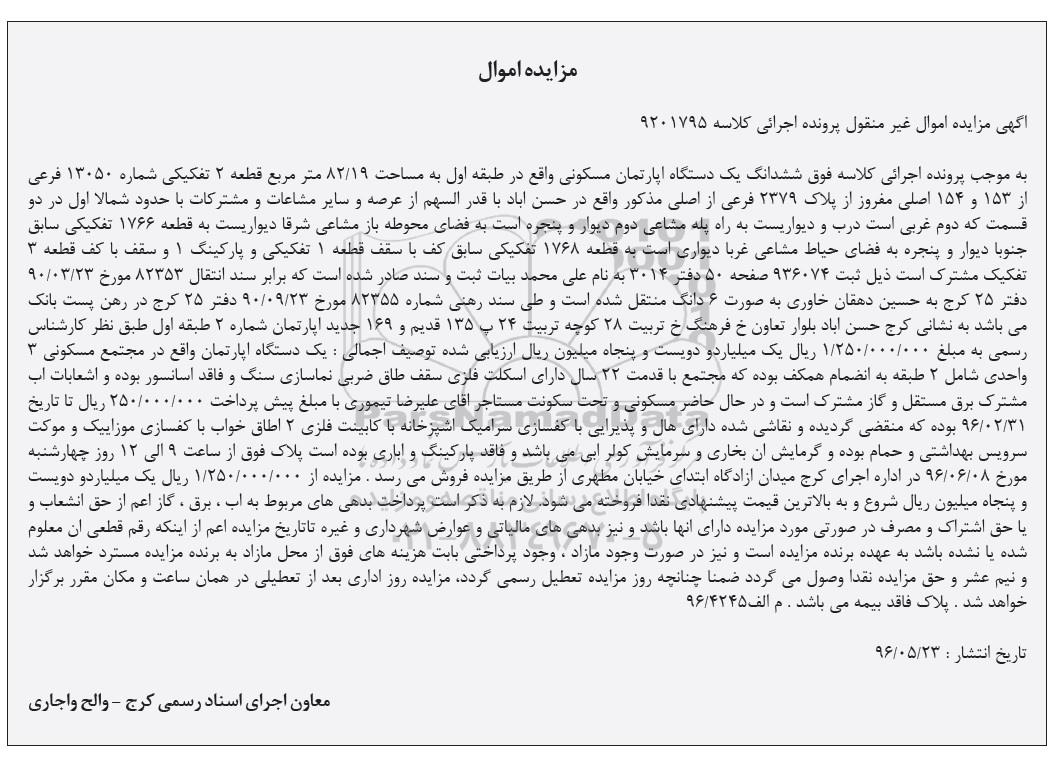 مزایده اموال
اگهی مزایده اموال غیر منقول پرونده اجرائی کلاسه ۹۲۰۱۷۹۵
به موجب پرونده اجرائی کلاسه فوق ششدانگ یک دستگاه اپارتمان مسکونی واقع در طبقه اول به مساحت ۸۲/۱۹ متر مربع قطعه ۲ تفکیکی شماره ۱۳۰۵۰ فرعی
از ۱۵۳ و ۱۵۴ اصلی مفروز از پلاک ۲۳۷۹ فرعی از اصلی مذکور واقع در حسن اباد با قدر السهم از عرصه و سایر مشاعات و مشترکات با حدود شمالا اول در دو
قسمت که دوم غربی است درب و دیواریست به راه پله مشاعی دوم دیوار و پنجره است به فضای محوطه باز مشاعی شرقا دیواریست به قطعه ۱۷۶۶ تفکیکی سابق
جنوبا دیوار و پنجره به فضای حیاط مشاعی غربا دیواری است به قطعه ۱۷۶۸ تفکیکی سابق کف با سقف قطعه ۱ تفکیکی و پارکینگ ۱ و سقف با کف قطعه ۳
تفکیک مشترک است ذیل ثبت ۹۳۶۰۷۴ صفحه ۵۰ دفتر ۳۰۱۴ به نام علی محمد بیات ثبت و سند صادر شده است که برابر سند انتقال ۸۲۳۵۳ مورخ ۹۰/۰۳/۲۳
دفتر ۲۵ کرج به حسین دهقان خاوری به صورت ۶ دانگ منتقل شده است و طی سند رهنی شماره ۸۲۳۵۵ مورخ ۹۰/۰۹/۲۳ دفتر ۲۵ کرج در رهن پست بانک
می باشد به نشانی کرج حسن اباد بلوار تعاون خ فرهنگ خ تربیت ۲۸ کوچه تربیت ۲۴ پ ۱۳۵ قدیم و ۱۶۹ جدید اپارتمان شماره ۲ طبقه اول طبق نظر کارشناس
رسمی به مبلغ ۱/۲۵۰/۰۰۰/۰۰۰ ریال یک میلیاردو دویست و پنجاه میلیون ریال ارزیابی شده توصیف اجمالی : یک دستگاه اپارتمان واقع در مجتمع مسکونی ۳
واحدی شامل ۲ طبقه به انضمام همکف بوده که مجتمع با قدمت ۲۲ سال دارای اسکلت فلزی سقف طاق ضربی نماسازی سنگ و فاقد اسانسور بوده و اشعابات اب
مشترک برق مستقل و گاز مشترک است و در حال حاضر مسکونی و تحت سکونت مستاجر اقای علیرضا تیموری با مبلغ پیش پرداخت ۲۵۰/۰۰۰/۰۰۰ ریال تا تاریخ
۹۶/۰۲/۳۱ بوده که منقضی گردیده و نقاشی شده دارای هال و پذیرایی با کفسازی سرامیک اشپزخانه با کابینت فلزی ۲ اطاق خواب با کفسازی موزاییک و موکت
سرویس بهداشتی و حمام بوده و گرمایش ان بخاری و سرمایش کولر ابی می باشد و فاقد پارکینگ و اباری بوده است پلاک فوق از ساعت ۹ الی ۱۲ روز چهارشنبه
مورخ ۹۶/۰۶/۰۸ در اداره اجرای کرج میدان ازادگاه ابتدای خیابان مطهری از طریق مزایده فروش می رسد . مزایده از ۱/۲۵۰/۰۰۰/۰۰۰ ریال یک میلیاردو دویست
و پنجاه میلیون ریال شروع و به بالاترین قیمت پیشنهادی نقدا فروخته می شود. لازم به ذکر است پرداخت بدهی های مربوط به اب ، برق ، گاز اعم از حق انشعاب و
یا حق اشتراک و مصرف در صورتی مورد مزایده دارای انها باشد و نیز بدهی های مالیاتی و عوارض شهرداری و غیره تاتاریخ مزایده اعم از اینکه رقم قطعی ان معلوم
شده یا نشده باشد به عهده برنده مزایده است و نیز در صورت وجود مازاد ، وجود پرداختی بابت هزینه های فوق از محل مازاد به برنده مزایده مسترد خواهد شد
و نیم عشر و حق مزایده نقدا وصول می گردد ضمنا چنانچه روز مزایده تعطیل رسمی گردد، مزایده روز اداری بعد از تعطیلی در همان ساعت و مکان مقرر برگزار
خواهد شد . پلاک فاقد بیمه می باشد . م الف۹۶/۴۲۴۵
تاریخ انتشار : ۹۶/۰۵/۲۳
معاون اجرای اسناد رسمی کرج – والح واجاری
ParsNamadData
پایگاه اطلاع رسانی مناقصه و مزایده
۰۲۱-۸۸۳۴۹۶۷۰-۵